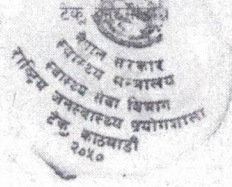 नेपाल सरकार
स्वास्थ्य मन्त्रालय
स्वास्थ्य सेवा विभाग
राष्ट्रिय जनस्वास्थ्य प्रयोगशाला
टेकु, काठमाडौं
२०५०